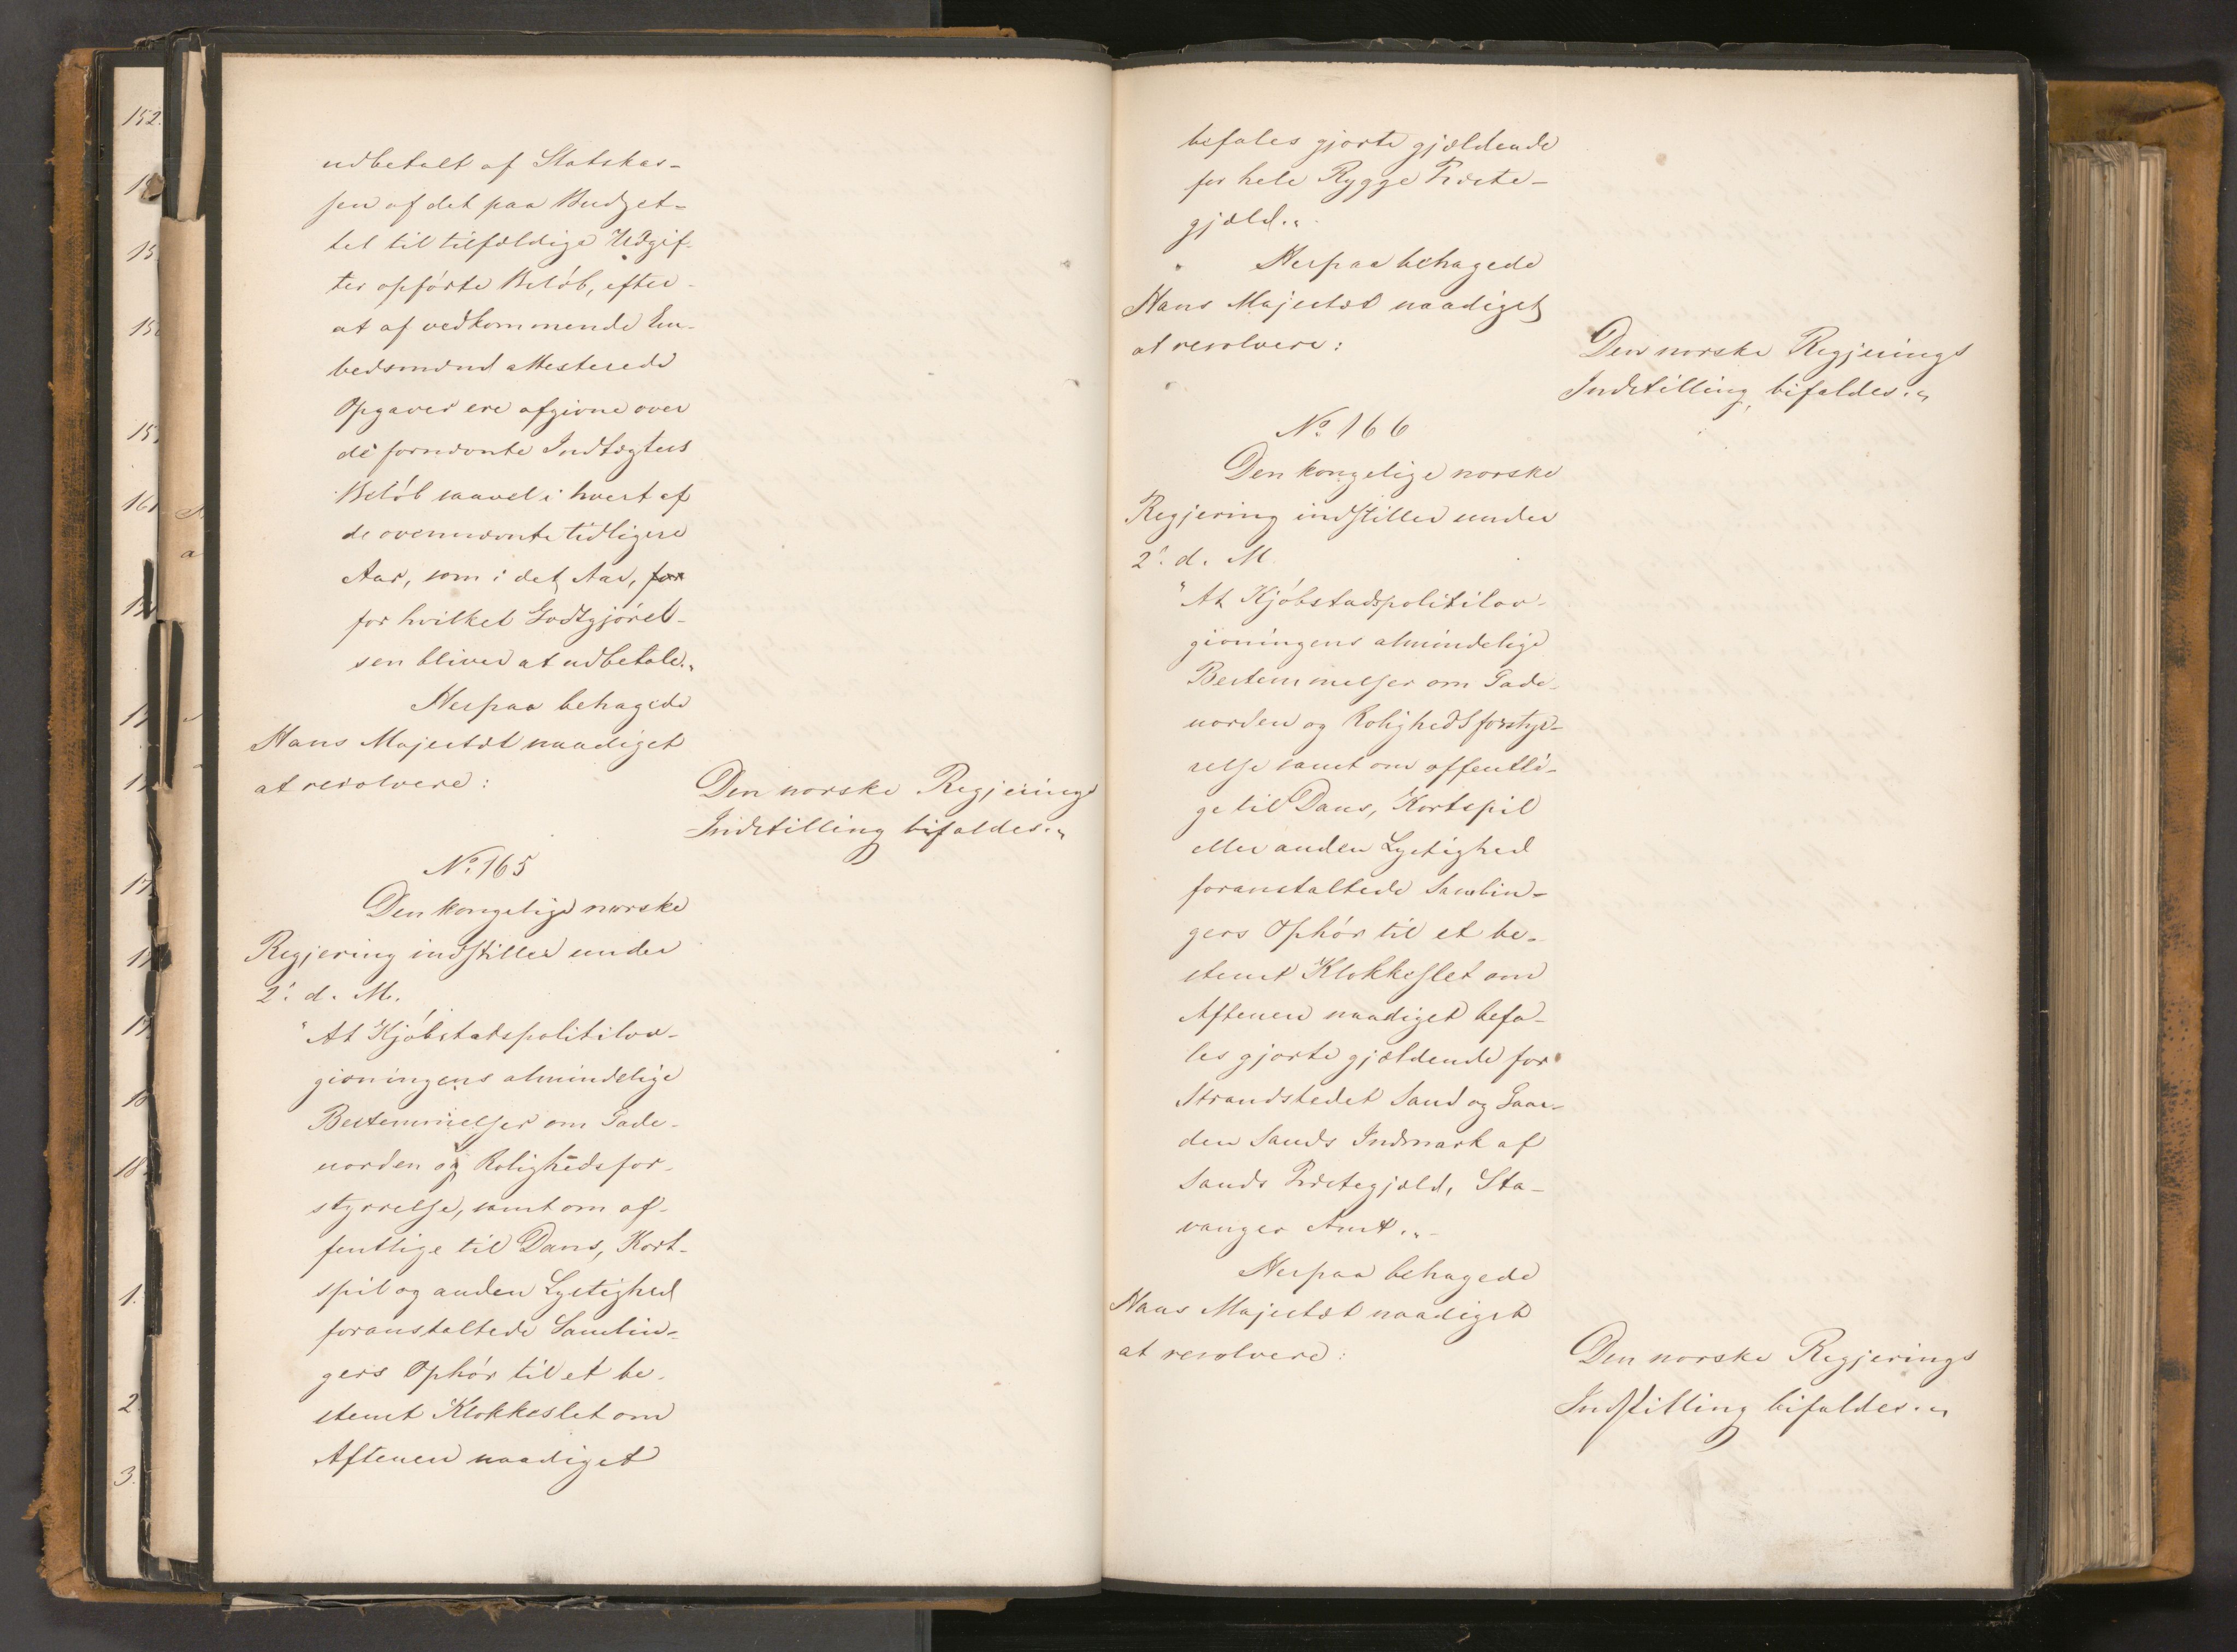 udbetalt af Statskas-
sen af det paa Budget-
tet til tilfældige Udgif-
ter opførte Beløb, efter
at af vedkommende Em-
bedsmænd attesterede
Opgaver ere afgivne over
de fornævnte Indtægters
Beløb saavel i hvert af
de ovennævnte tidligere
Aar, som i det Aar, for
for hvilket Godtgjørel-
sen bliver at udbetale."
Herpaa behagede
Hans Majestæt naadigst
at resolvere:
Den norske Regjerings
Indstilling bifaldes."
No. 165
Den kongelige norske
Regjering indstiller under
2. d. M.
"At Kjøbstadspolitilov-
givningens almindelige
Bestemmelser om Gade-
uorden og Rolighedsfor-
styrrelse, samt om of-
fentlige til Dans, Kort-
spil og anden Lystighed
foranstaltede Samlin-
gers Ophør til et be-
stemt Klokkeslet om
Aftenen naadigst
befales gjorte gjældende
for hele Rygge Præste-
gjæld."
Herpaa behagede
Hans Majestæt naadigst
at resolvere:
Den norske Regjerings
Indstilling bifaldes."
No. 166
Den kongelige norske
Regjering indstiller under
2. d. M.
"At Kjøbstadspolitilov-
givningens almindelige
Bestemmelser om Gade-
uorden og Rolighedsforstyr-
relse samt om offentli-
ge til Dans, Kortspil
eller anden Lystighed
foranstaltede Samlin-
gers Ophør til et be-
stemt Klokkeslet om
Aftenen naadigst befa-
les gjorte gjældende for
Strandstedet Sand og Gaar-
den Sands Indmark af
Sands Præstegjæld, Sta-
vanger Amt."
Herpaa behagede
Hans Majestæt naadigst
at resolvere:
Den norske Regjerings
Indstilling bifaldes."